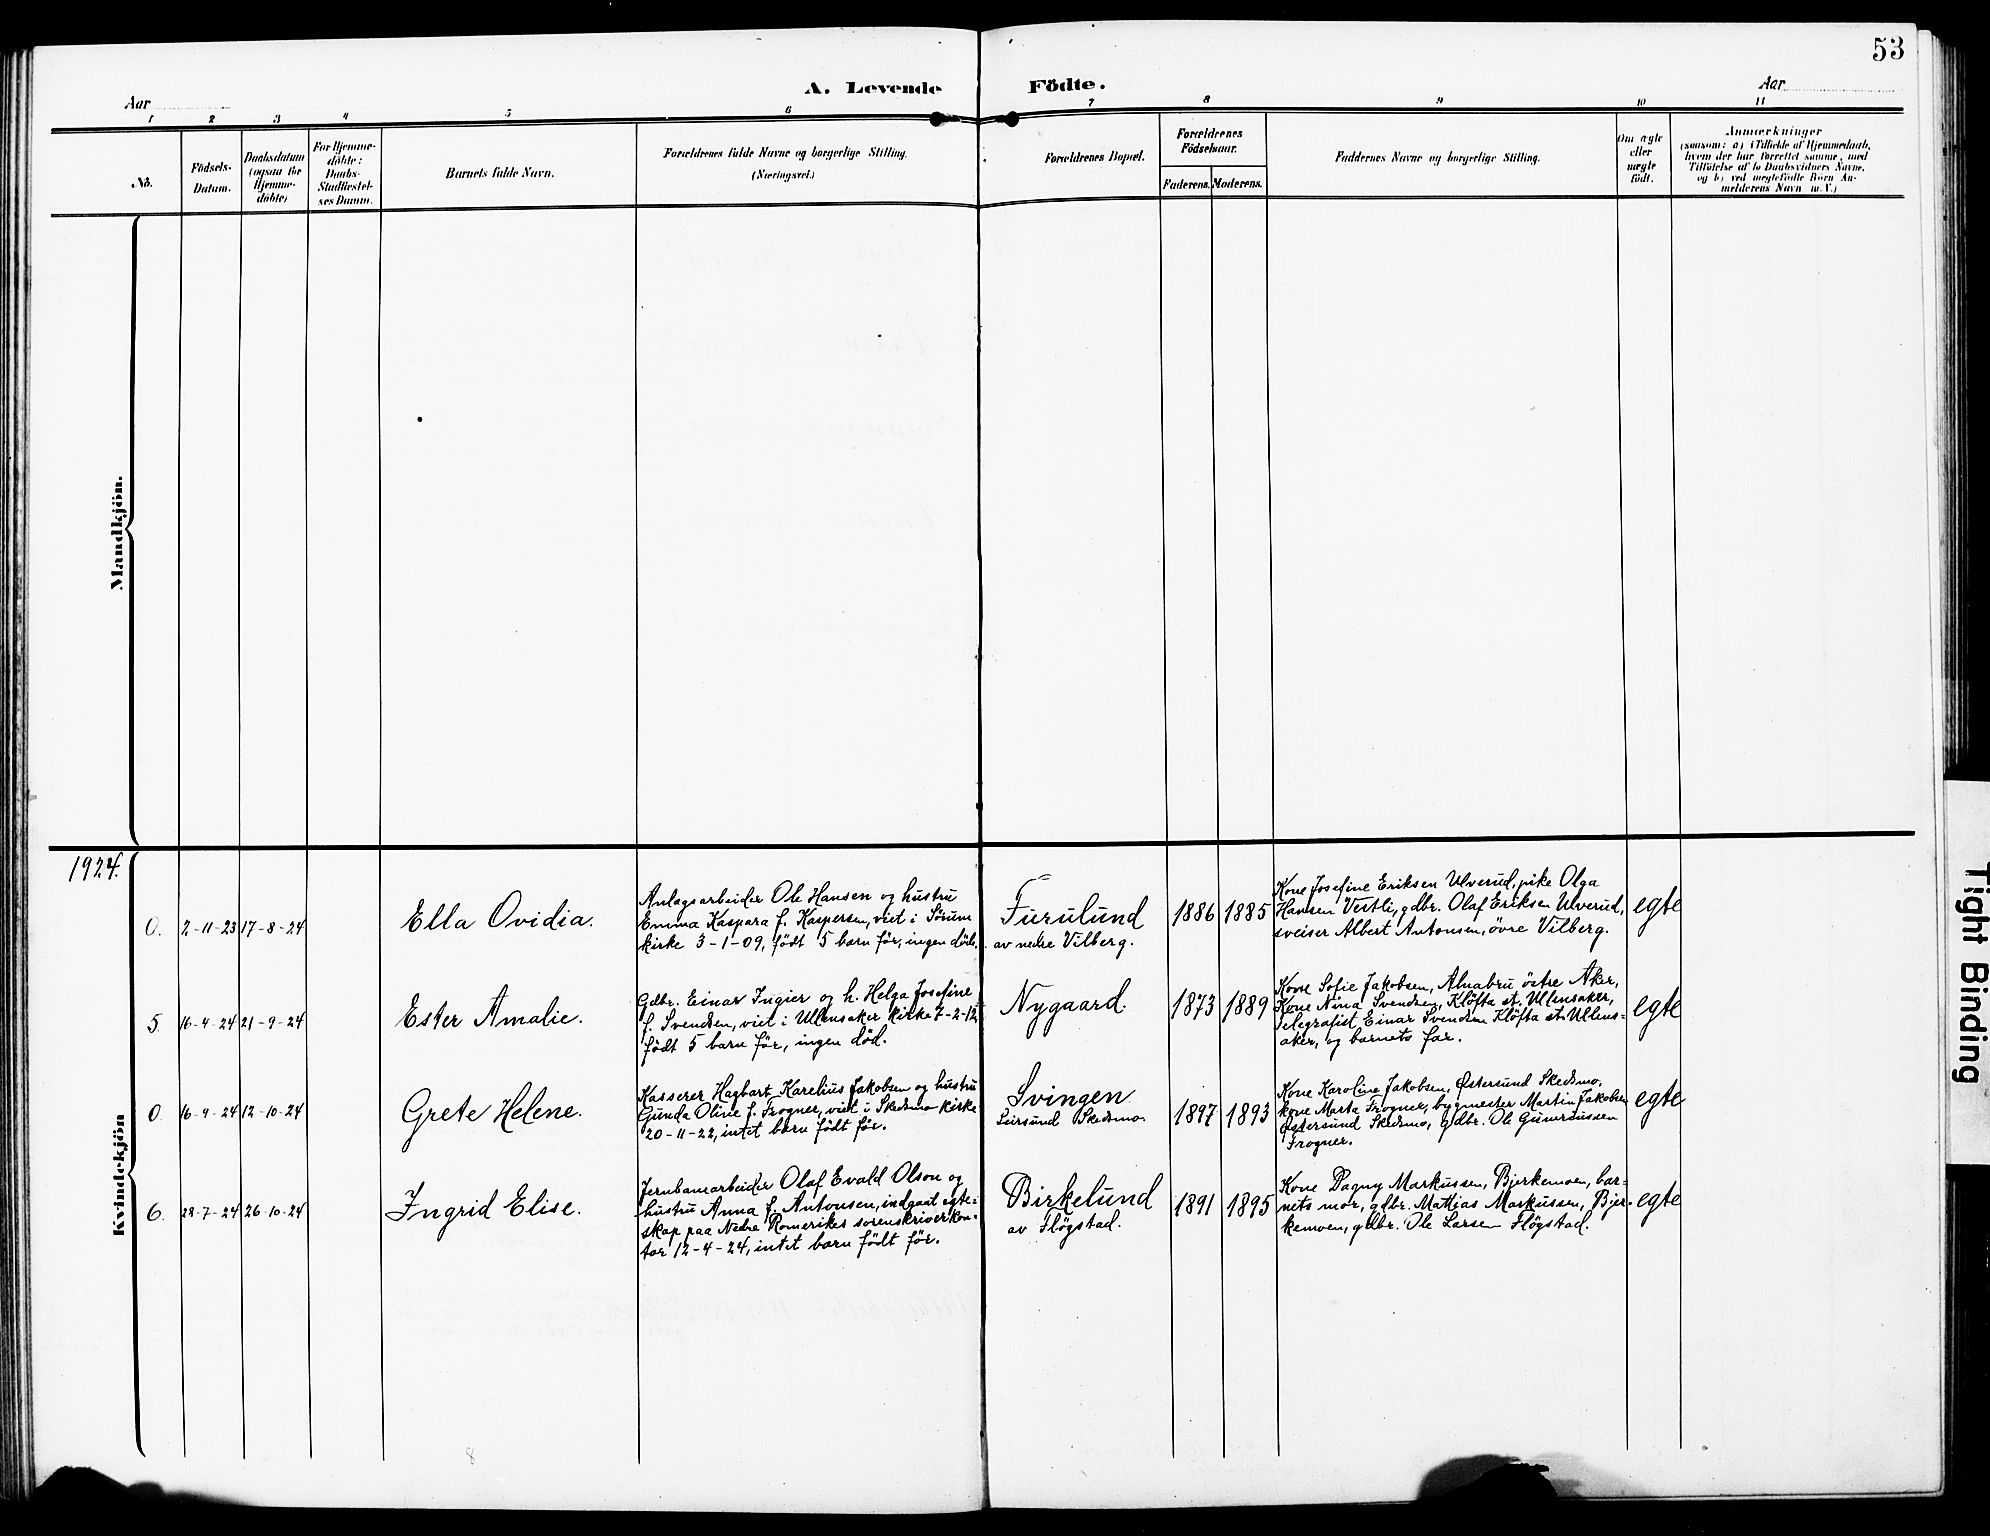 53
A. Levende Födte.
Aar
Aar
1 2 3 4 5 6 7 8 9 10 11
No.
Födsels-
Datum.
Daabsdatum
(ogsaa for
Hjemme-
döbte)
For Hjemme-
döbte:
Daabs-
Stadfæstel-
ses Datum.
Barnets fulde Navn.
Forældrenes fulde Navne og borgerlige Stilling.
(Næringsvei.)
Forældrenes Bopæl.
Forældrenes
Födselsaar.
Faderens. Moderens.
Faddernes Navne og borgerlige Stilling.
Om ægte
eller
uægte
födt.
Anmærkninger
(saasom: a) i Tilfælde af Hjemmedaab,
hvem der har forrettet samme, med
Tilföielse af to Daabsvidners Navne,
og b) ved uægtefödte Börn An-
melderens Navn m.V.)
Mandkjön.
Kvindekjön
1924.
0. 2-11-23 17-8-24
Ella Ovidia.
Anlagsarbeider Ole Hansen og hustru
Emma Kaspara f. Kaspersen, viet i Sørum
kirke 3-1-09, født 5 barn før, ingen døde.
Furulund
av nedre Vilberg.
1886 1885
Kone Josefine Eriksen Ulverud, pike Olga
Hansen Vestli, gdbr. Olaf Eriksen Ulverud,
sveiser Albert Antonsen, övre Vilberg.
egte
5. 16-4-24 21-9-24
Ester Amalie.
Gdbr. Einar Ingier og h. Helga Josefine
f. Svendsen, viet i Ullensaker kirke 7-2-12,
født 5 barn før, ingen död.
Nygaard.
1873 1889
Kone Sofie Jakobsen, Alnabru östre Aker,
Kone Nina Svendsen, Klöfta st. Ullensaker,
telegrafist Einar Svendsen Klöfta st. Ullens-
aker, og barnets far.
egte
0. 16-9-24 12-10-24
Grete Helene.
Kasserer Hagbart Karelius Jakobsen og hustru
Gunda Oline f. Frogner, viet i Skedsmo kirke
20-11-22, intet barn født før.
Svingen
Leirsund Skedsmo.
1897 1893
Kone Karoline Jakobsen, Østersund Skedsmo,
kone Marta Frogner, bygmester Martin Jakobsen
Østersund Skedsmo, gdbr. Ole
Frogner.
egte
6. 28-7-24 26-10-24
Ingrid Elise.
Jernbanearbeider Olaf Evald Olson og
hustru Anna f. Antonsen, indgaat egte-
skap paa Nedre Romerikes sorenskriverkon-
tor 12-4-24, intet barn født før.
Birkelund
av Fløgstad.
1891 1895
Kone Dagny Markussen, Bjerkemoen, bar-
nets mor, gdbr. Mathias Markussen, Bjer-
kemoen, gdbr. Ole Larsen Fløgstad.
egte
8
Tight Binding